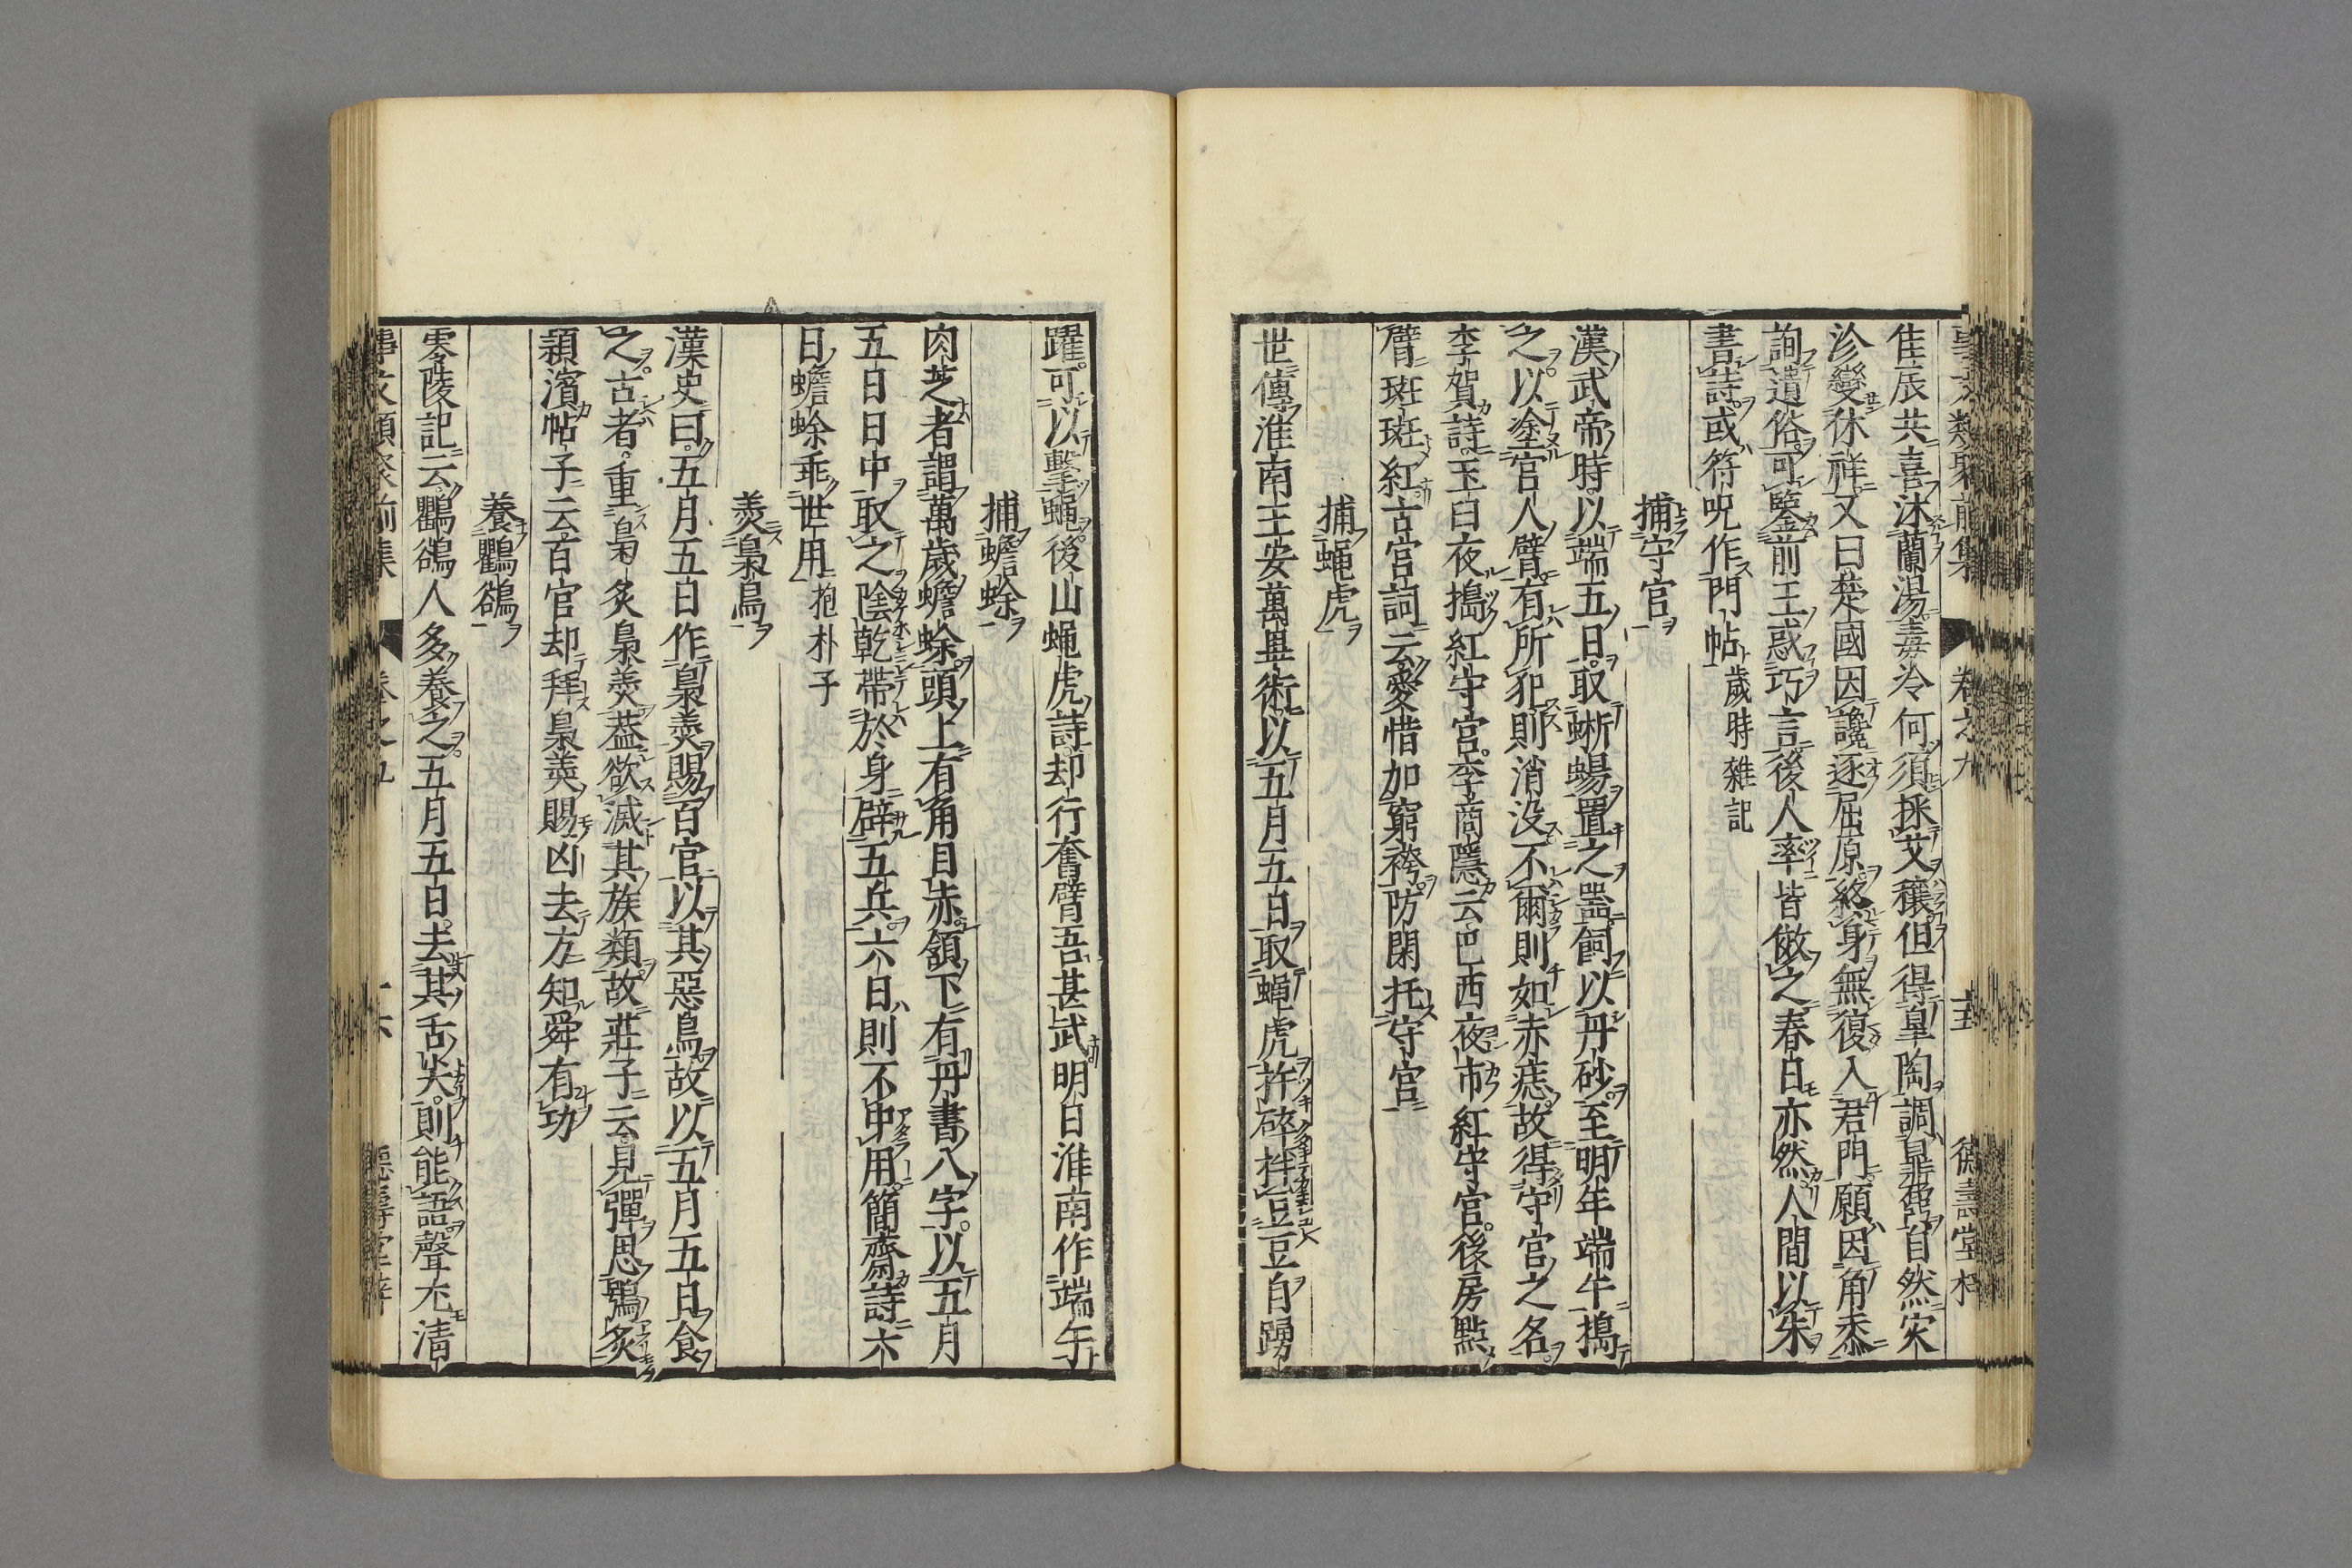 事文類聚前集 卷之九 十五 德壽堂梓
佳辰共喜沐蘭湯毒冷何須採艾穰但得皐陶調鼎鼐自然灾
沴變休祥又曰楚國因讒逐屈原終身無復入君門願因角黍
詢遺俗可鑒前王惑巧言後人率皆倣之春日亦然人間以朱
書詩或符呪作門帖歲時雜記
捕守官
漢武帝時以端五日取蜥蜴置之噐飼以丹砂至明年端午搗
之以塗宫人臂有所犯則消没不爾則如赤痣故得守宫之名
李賀詩玉臼夜搗紅守宫李商隱云巴西夜市紅守宫後房點
臂斑斑紅古宫詞云愛惜加窮袴防閑托守宫
捕蝿虎
世傳淮南王安萬畢術以五月五日取蝿虎許碎拌豆豆自踴
躍可以擊蝿後山蝿虎詩却行奮臂吾甚武明日淮南作端午
捕蟾蜍
肉芝者謂萬歲蟾蜍頭上有角目赤頷下有丹書八字以五月
五日日中取之陰乾帶於身辟五兵六日則不中用簡齋詩六
日蟾蜍乖世用抱朴子
羮梟鳥
漢史曰五月五日作梟羮賜百官以其惡鳥故以五月五日食
之古者重梟炙梟羮葢欲滅其族類故莊子云見彈思鴞炙
頴濱帖子云百官却拜梟羮賜凶去方知舜有功
養鸜鵒
零陵記云鸜鵒人多養之五月五日去其舌尖則能語聲尤清